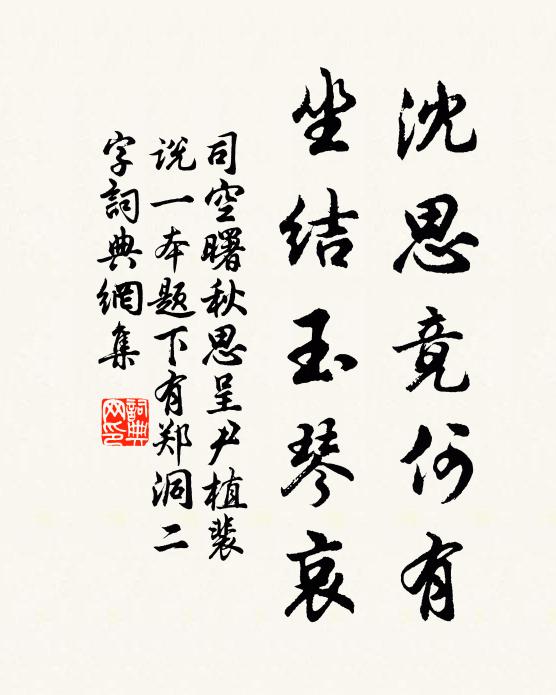 沈思竟何有
坐结玉琴哀
司空曙秋思呈尹植裴
说一本题下有郑洞二
字詞典網集
詞典
网印